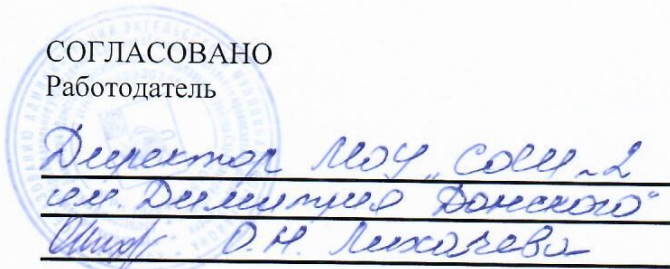 СОГЛАСОВАНО
Работодатель
Директор МОУ „СОШ №2
им. Димитрия Донского"
О.Н. Лихачева